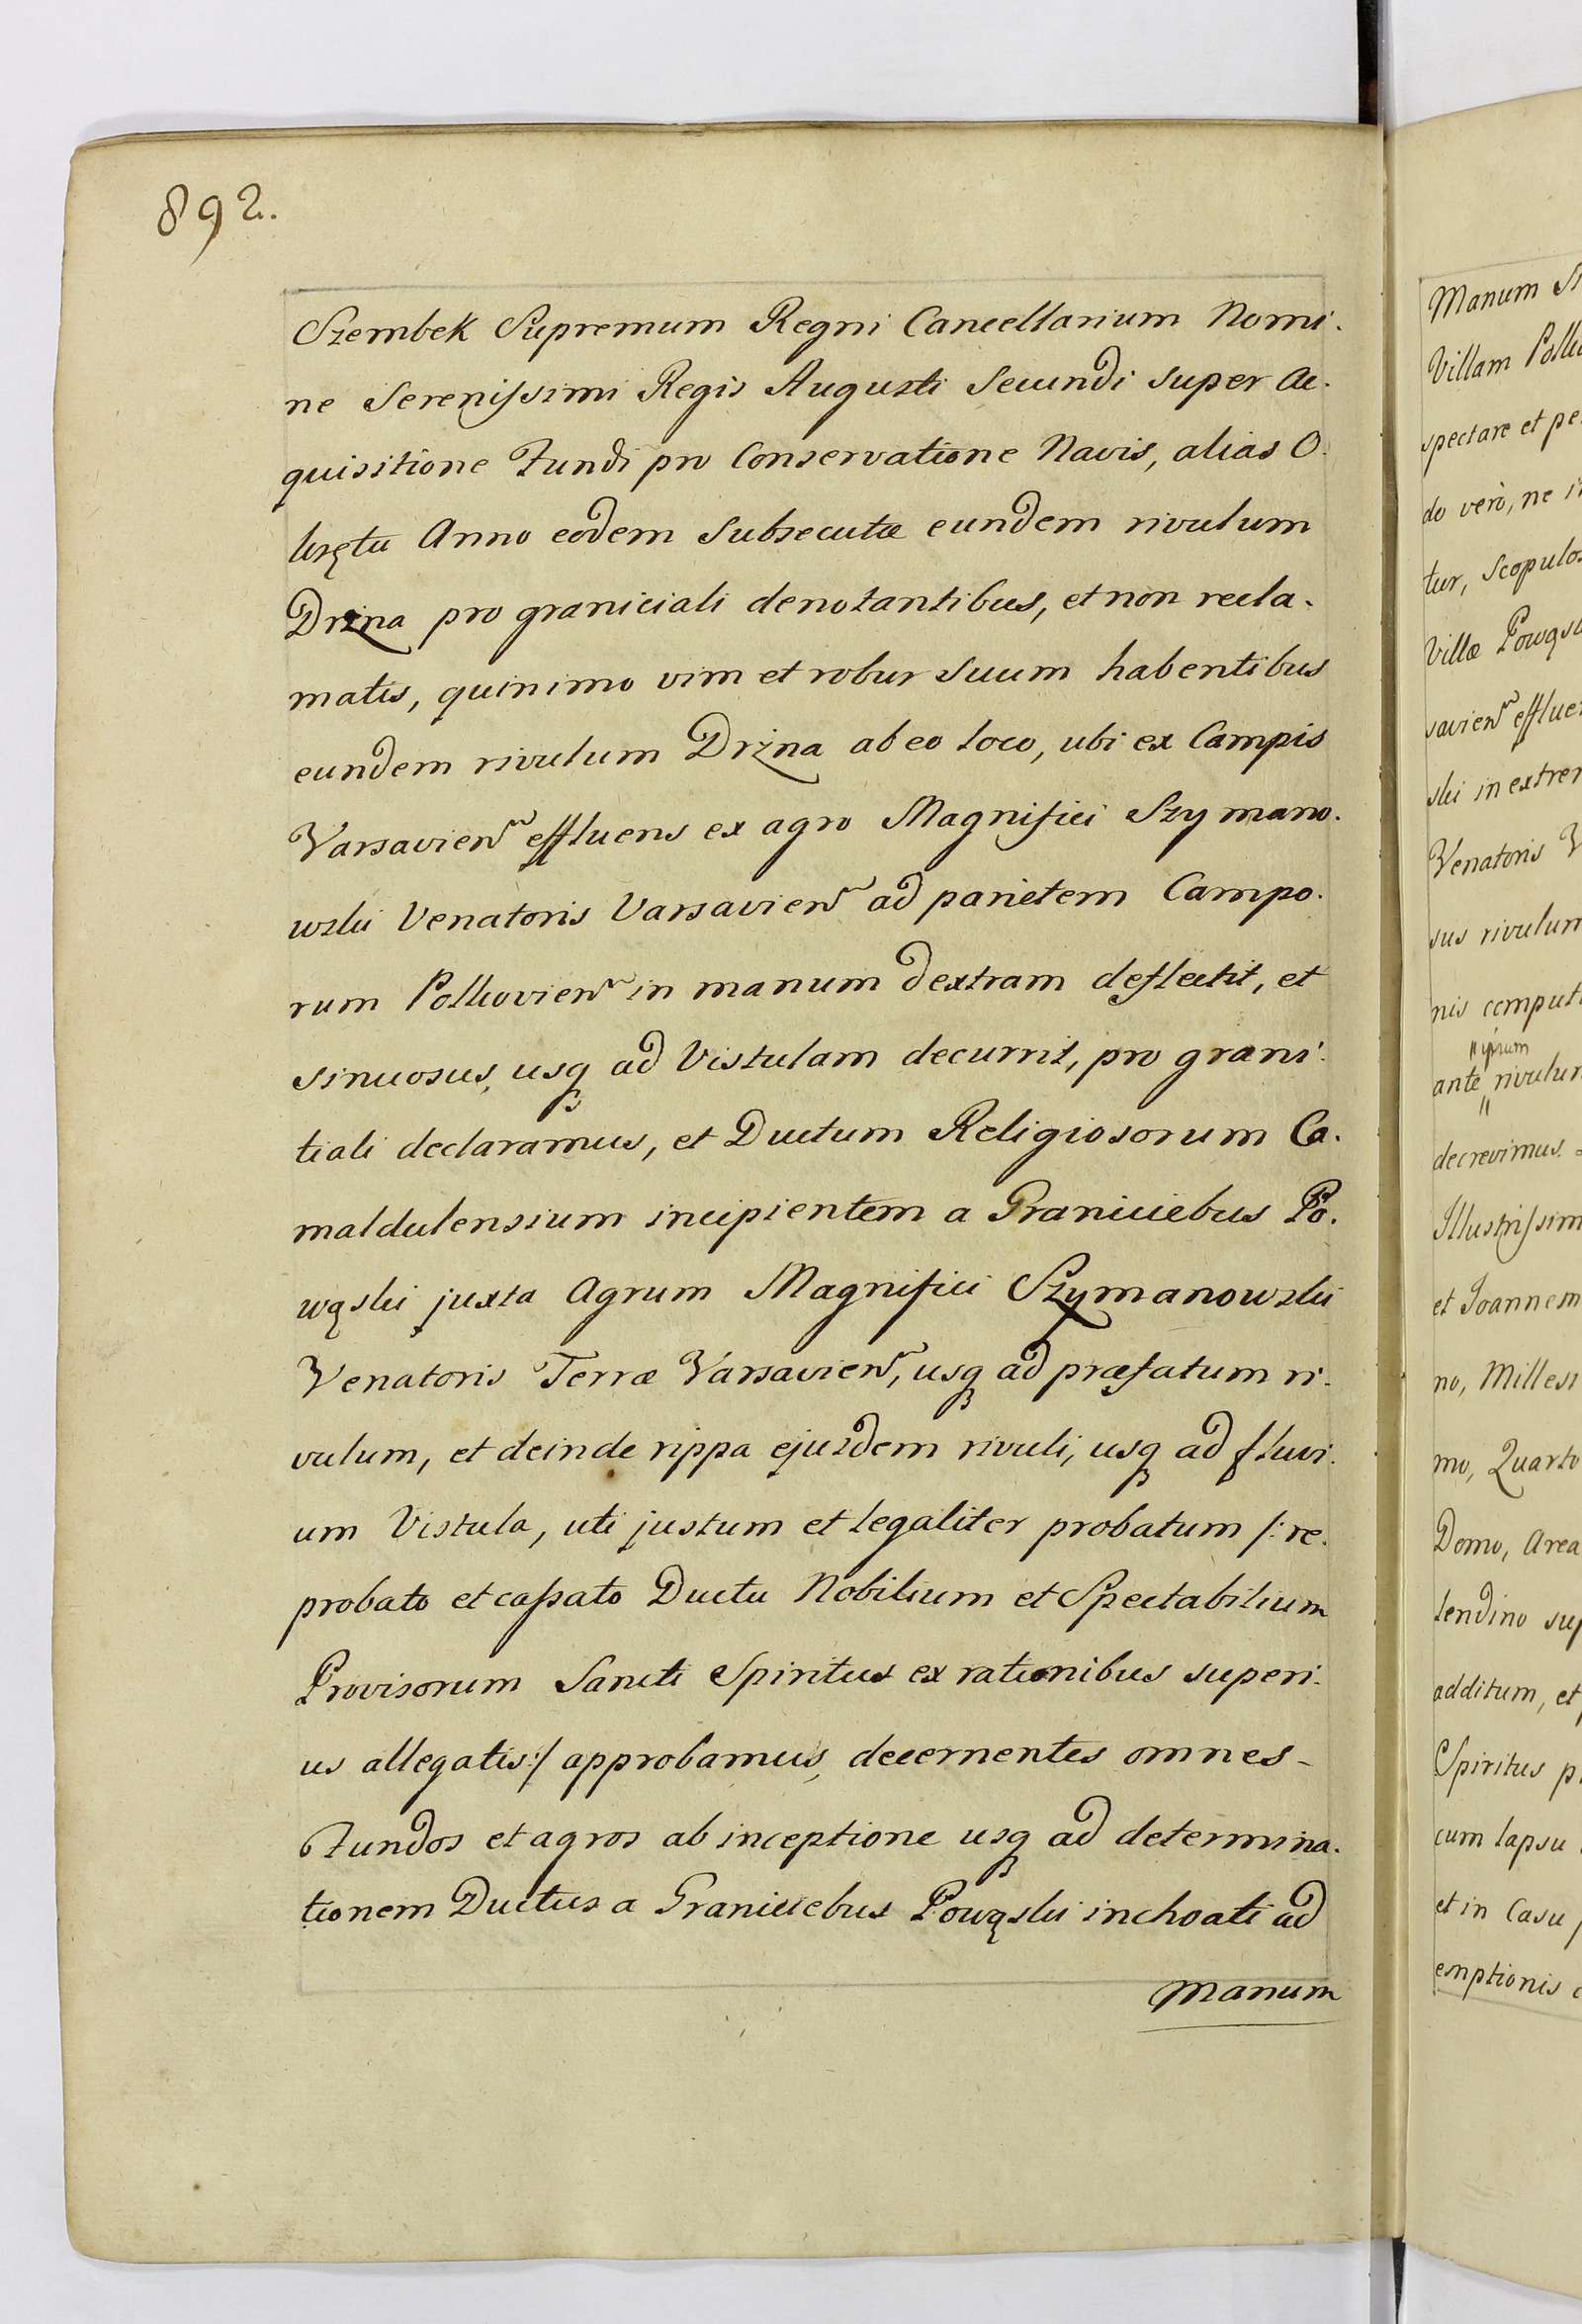 892.
Szembek Supremum Regni Cancellarium Nomi.
ne Serenissimi Regis Augusti Secundi super Ac.
quisitione Fundi pro Conservatione Navis, alias O.
krętu Anno eodem Subsecutæ eundem rivulum
Drzna pro graniciali denotantibus, et non recla.
matis, quinimo vim et robur suum habentibus
eundem rivulum Drzna ab eo loco, ubi ex Campis
Varsavien effluens ex agro Magnifici Szymano.
wski Venatoris Varsavien ad parietem Campo.
rum Polkovien in manum dextram deflectit, et
sinuosus, usq ad Vistulam decurrit, pro grani.
tiali declaramus, et Ductum Religiosorum Ca.
maldulensium incipientem a Graniciebus Po.
wąski juxta Agrum Magnifici Szymanowski
Venatoris Terræ Varsavien, usq ad præfatum ri.
vulum, et deinde rippa ejusdem rivuli, usq ad fluvi.
um Vistula, uti justum et legaliter probatum /: re.
probato et cassato Ductu Nobilium et Spectabilium
Provisorum Sancti Spiritus ex rationibus superi.
us allegatis :/ approbamus, decernentes omnes
Fundos et agros ab inceptione usq ad determina.
tionem Ductus a Graniciebus Powąski inchoati ad
Manum
Manum
Villam
spectare et
do verò, ne
tur,
Villæ
savien
ski in
Venatoris
sus rivulum
nis
ipsum
ante
decrevimus.
et Joannem
no,
mo, Quarto
Domo, Area
lendino
additum, et
Spiritus
cum lapsu
et in Casu
emptionis